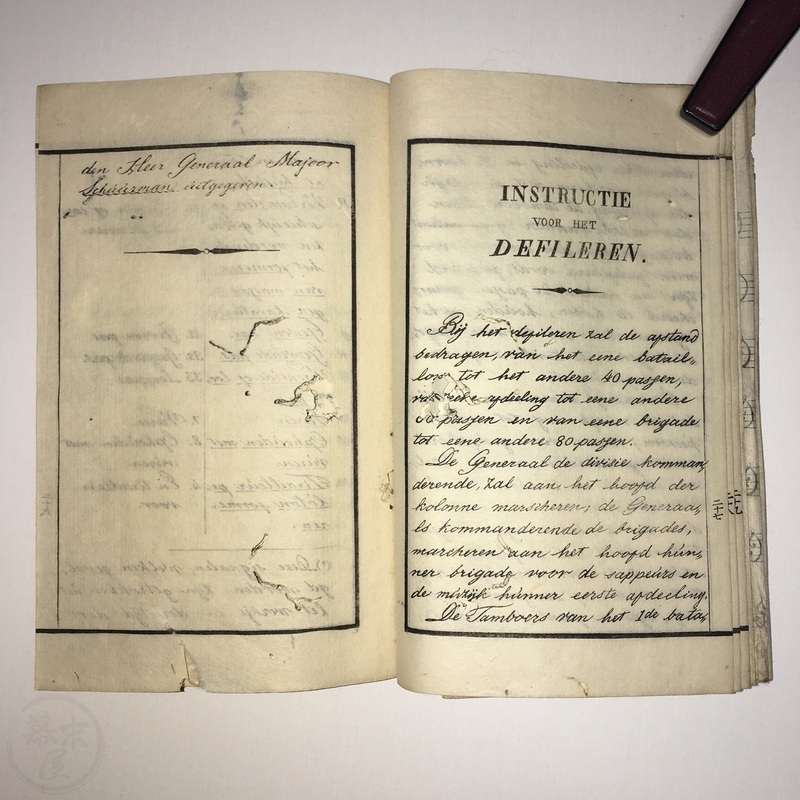 den Heer Generaal Majoor
Schuurman uitgegeven.
INSTRUCTIE
VOOR HET
DEFILEREN.
Bij het defileren zal de afstand
bedragen, van het eene batail-
lon tot het andere 40 passen,
van eene afdieling tot eene andere
60 passen en van eene brigade
tot eene andere 80 passen.
De Generaal de divisie komman,
derende, zal aan het hoofd der
kolonne marscheren, de Generaal,
ls kommanderende de brigades,
marcheren aan het hoofd hun,
ner brigade voor de sappeurs en
de muzijk hunner eerste afdeeling.
De Tamboers van het 1de bata,